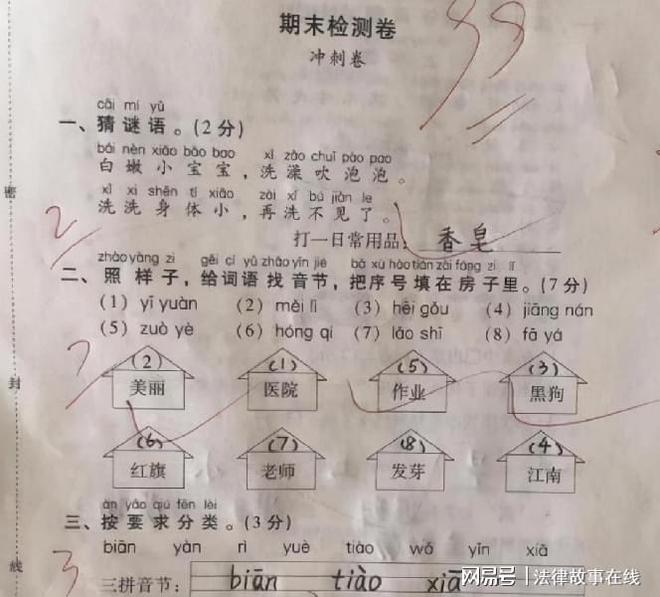 期末检测卷
冲刺卷
cāi mí yǔ
一、猜谜语。(2分)
bái nèn xiǎo bǎo bao xǐ zǎo chuī pào pao
白嫩小宝宝，洗澡吹泡泡。
xǐ xi shēn tǐ xiǎo zài xǐ bú jiàn le
洗洗身体小，再洗不见了。
2
打一日常用品：香皂
zhào yàng zi gěi cí yǔ zhǎo yīn jié bǎ xù hào tián zài fáng zi lǐ
二、照样子，给词语找音节，把序号填在房子里。(7分)
(1) yī yuàn (2) měi lì (3) hēi gǒu (4) jiāng nán
(5) zuò yè (6) hóng qí (7) lǎo shī (8) fā yá
7
(2) (1) (5) (3)
美丽 医院 作业 黑狗
(6) (7) (8) (4)
红旗 老师 发芽 江南
àn yāo qiú fēn lèi
三、按要求分类。(3分)
biān yàn rì yuè tiào wǒ yīn xià
3
三拼音节：biān tiào xià
密
封
线
网易号 | 法律故事在线